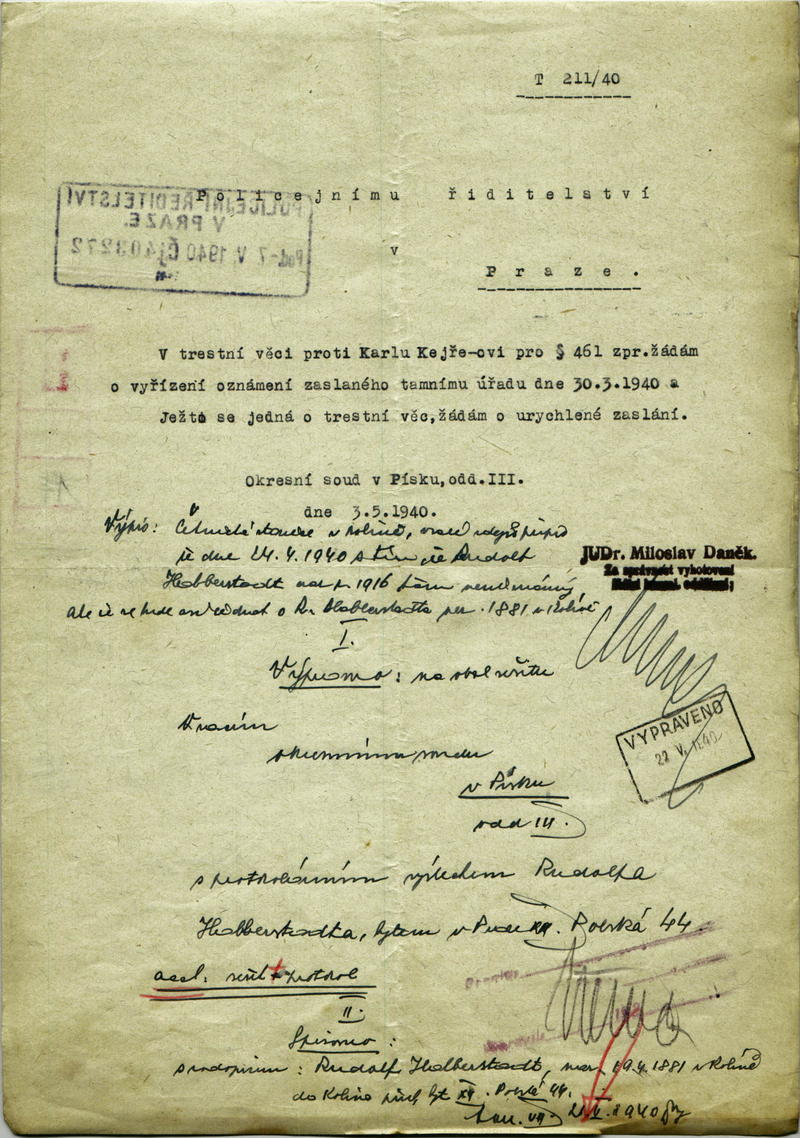 T 211/40
Policejnímu řiditelství
v
Praze.
POLICEJNÍ ŘEDITELSTVÍ
V PRAZE.
Pod. -7. V. 1940 Čj 403272
V trestní věci proti Karlu Kejře-ovi pro § 461 zpr.žádám
o vyřízení oznámení zaslaného tamnímu úřadu dne 30.3.1940 a
Ježto se jedná o trestní věc,žádám o urychlené zaslání.
Okresní soud v Písku,odd.III.
dne 3.5.1940.
Výpis: Četnická stanice v Kolíně,
že dne 24.4.1940 s tím že Rudolf
Halberstadt od r. 1916 tam není
ale že se bude o R. Halberstadta nar. 1881 v Kolíně
JUDr. Miloslav Daněk.
Za správnost vyhotovení
I.
Výpismo: na
Vracím
okresnímu soudu
v Písku
odd III.
VYPRAVENO
22 V. 1940
s protokolárním výslechem Rudolfa
Halberstadta, bytem v Praze XII. Polská 44.
protokol
II.
Spisovna:
Rudolf Halberstadt, nar. 19.4.1881 v Kolíně
do Kolína XII. Polská 44.
1940